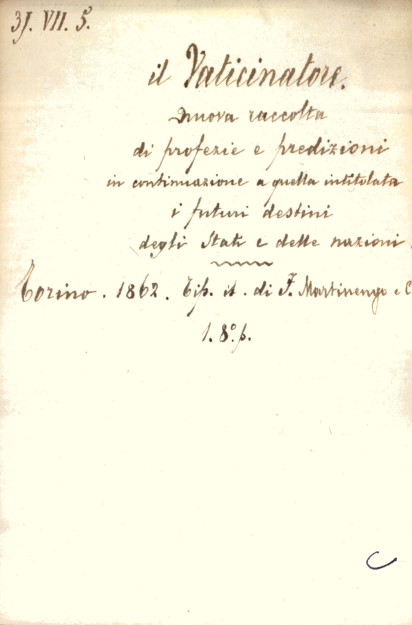 31. VII. 5.
il Vaticinatore.
nuova raccolta
di profezie e predizioni
in continuazione a quella intitolata
i futuri destini
degli Stati e delle nazioni.
Torino. 1862. Tip. it. di F. Martinengo e C
1. 8º. p.
C